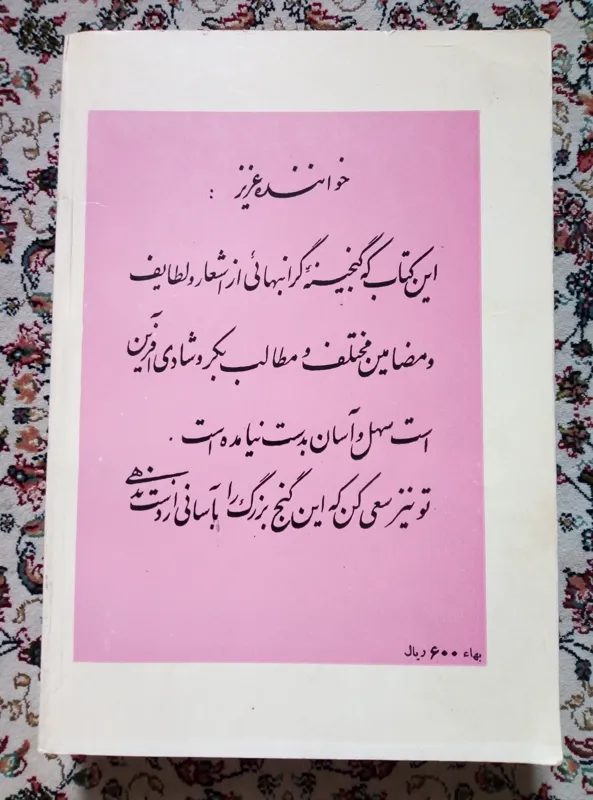 خواننده عزیز :
این کتاب که گنجینهٔ گرانبهائی از اشعار و لطایف
و مضامین مختلف و مطالب بکر و شادی آفرین
است سهل و آسان بدست نیامده است .
تو نیز سعی کن که این گنج بزرگ را بآسانی از دست ندهی
بهاء ۶۰۰ ریال